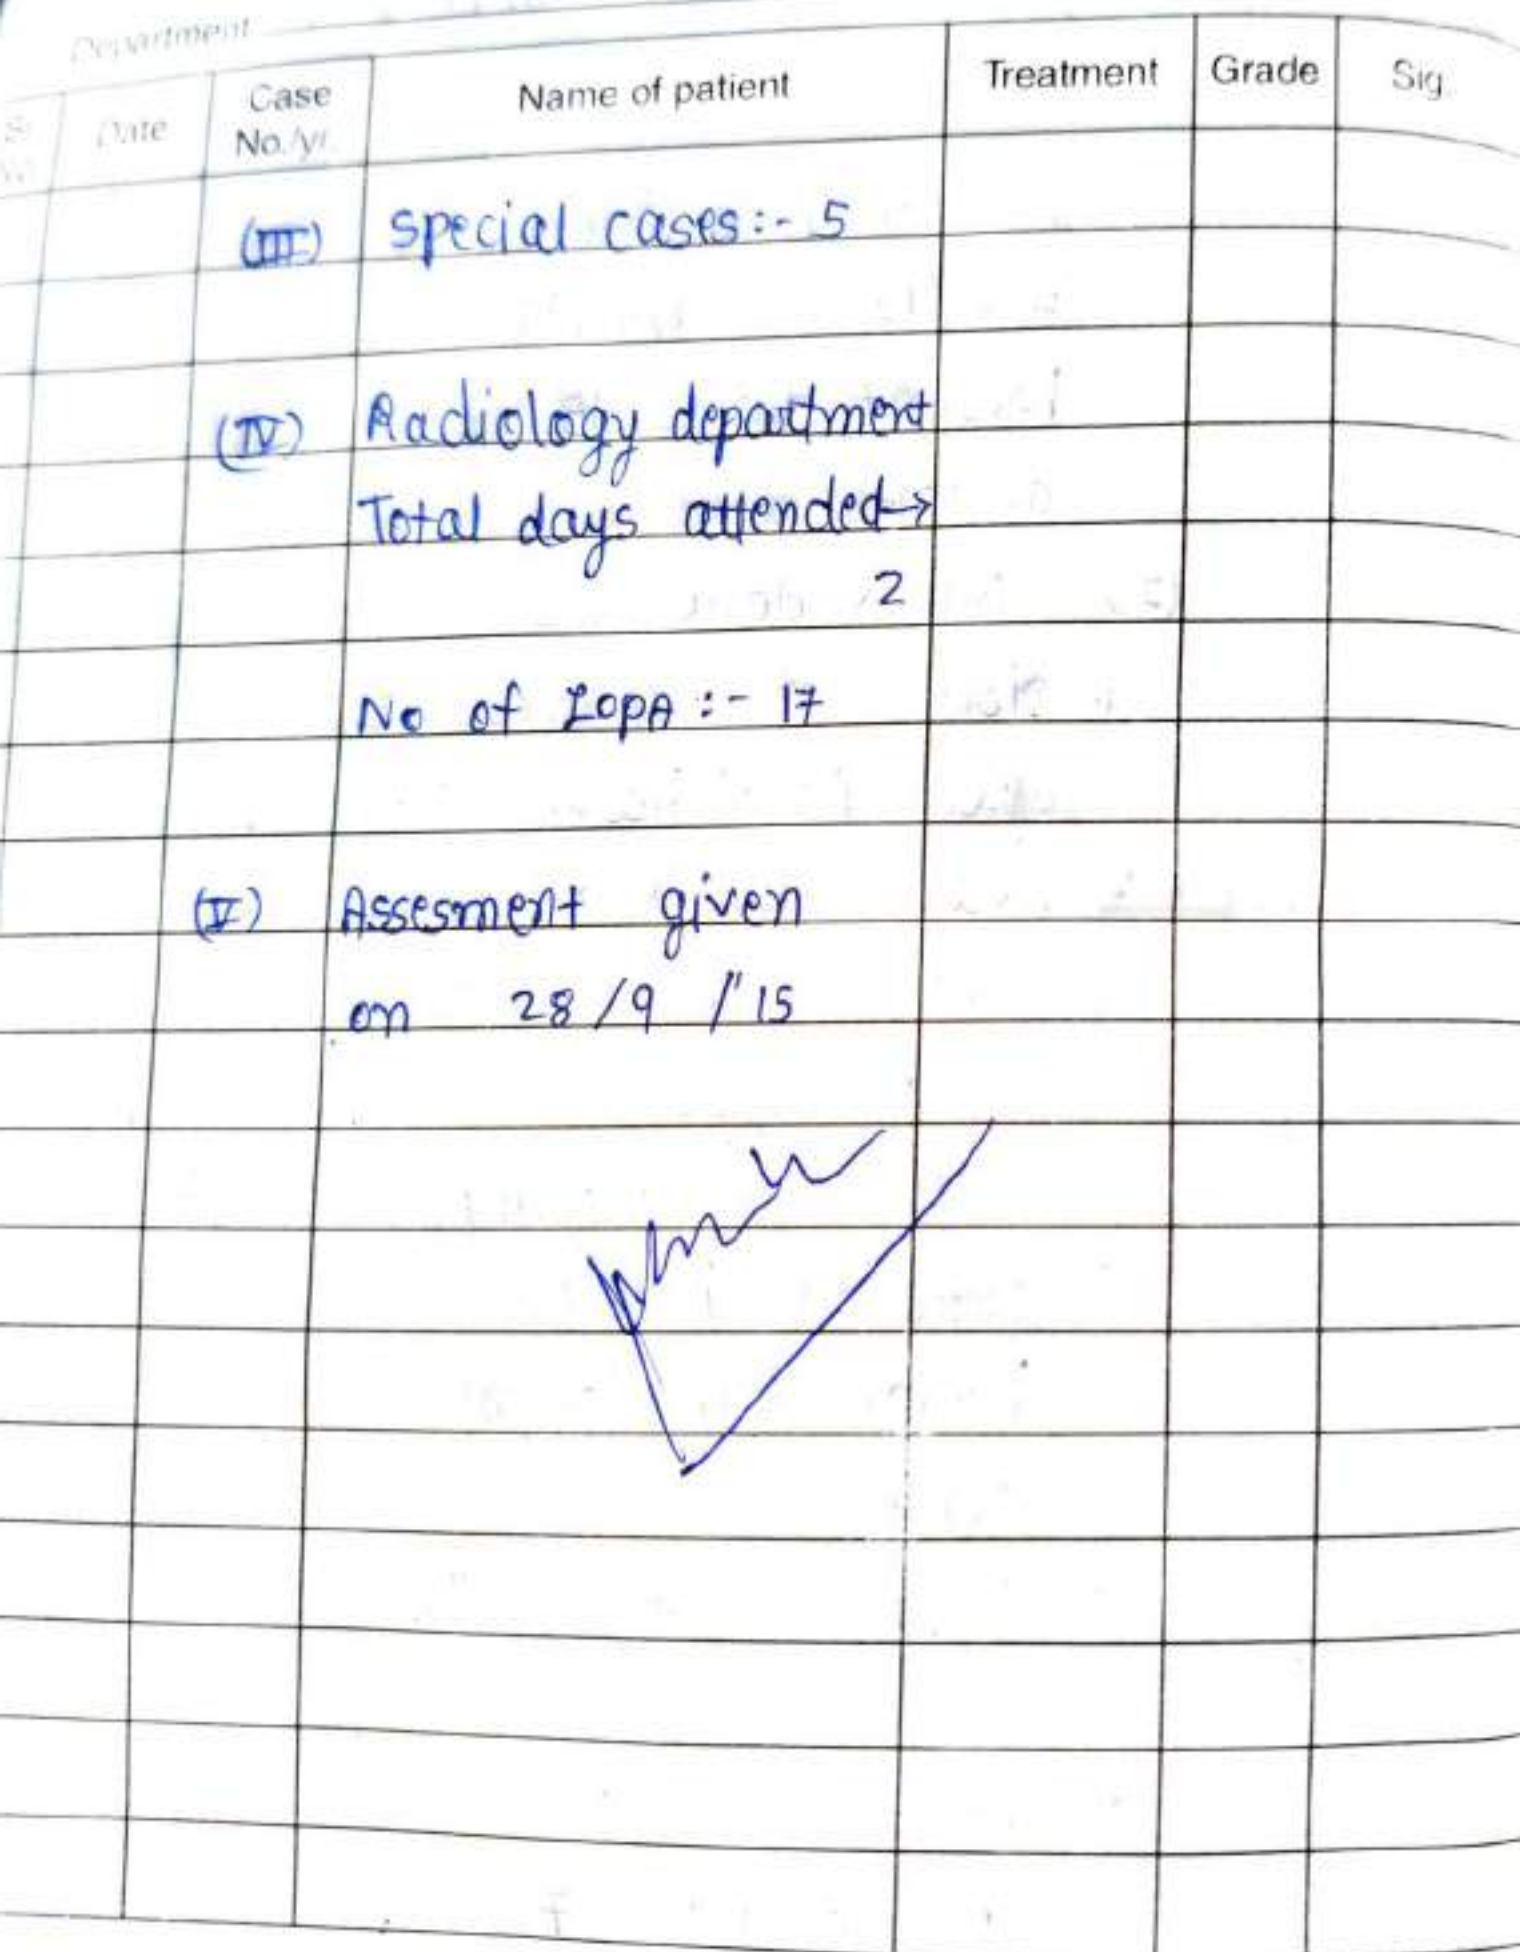 Department
Sr. No. Date Case No./yr. Name of patient Treatment Grade Sig.
(III) special cases:- 5
(IV) Radiology department
Total days attended→
2
No of IOPA :- 17
(V) Assesment given
on 28/9/'15